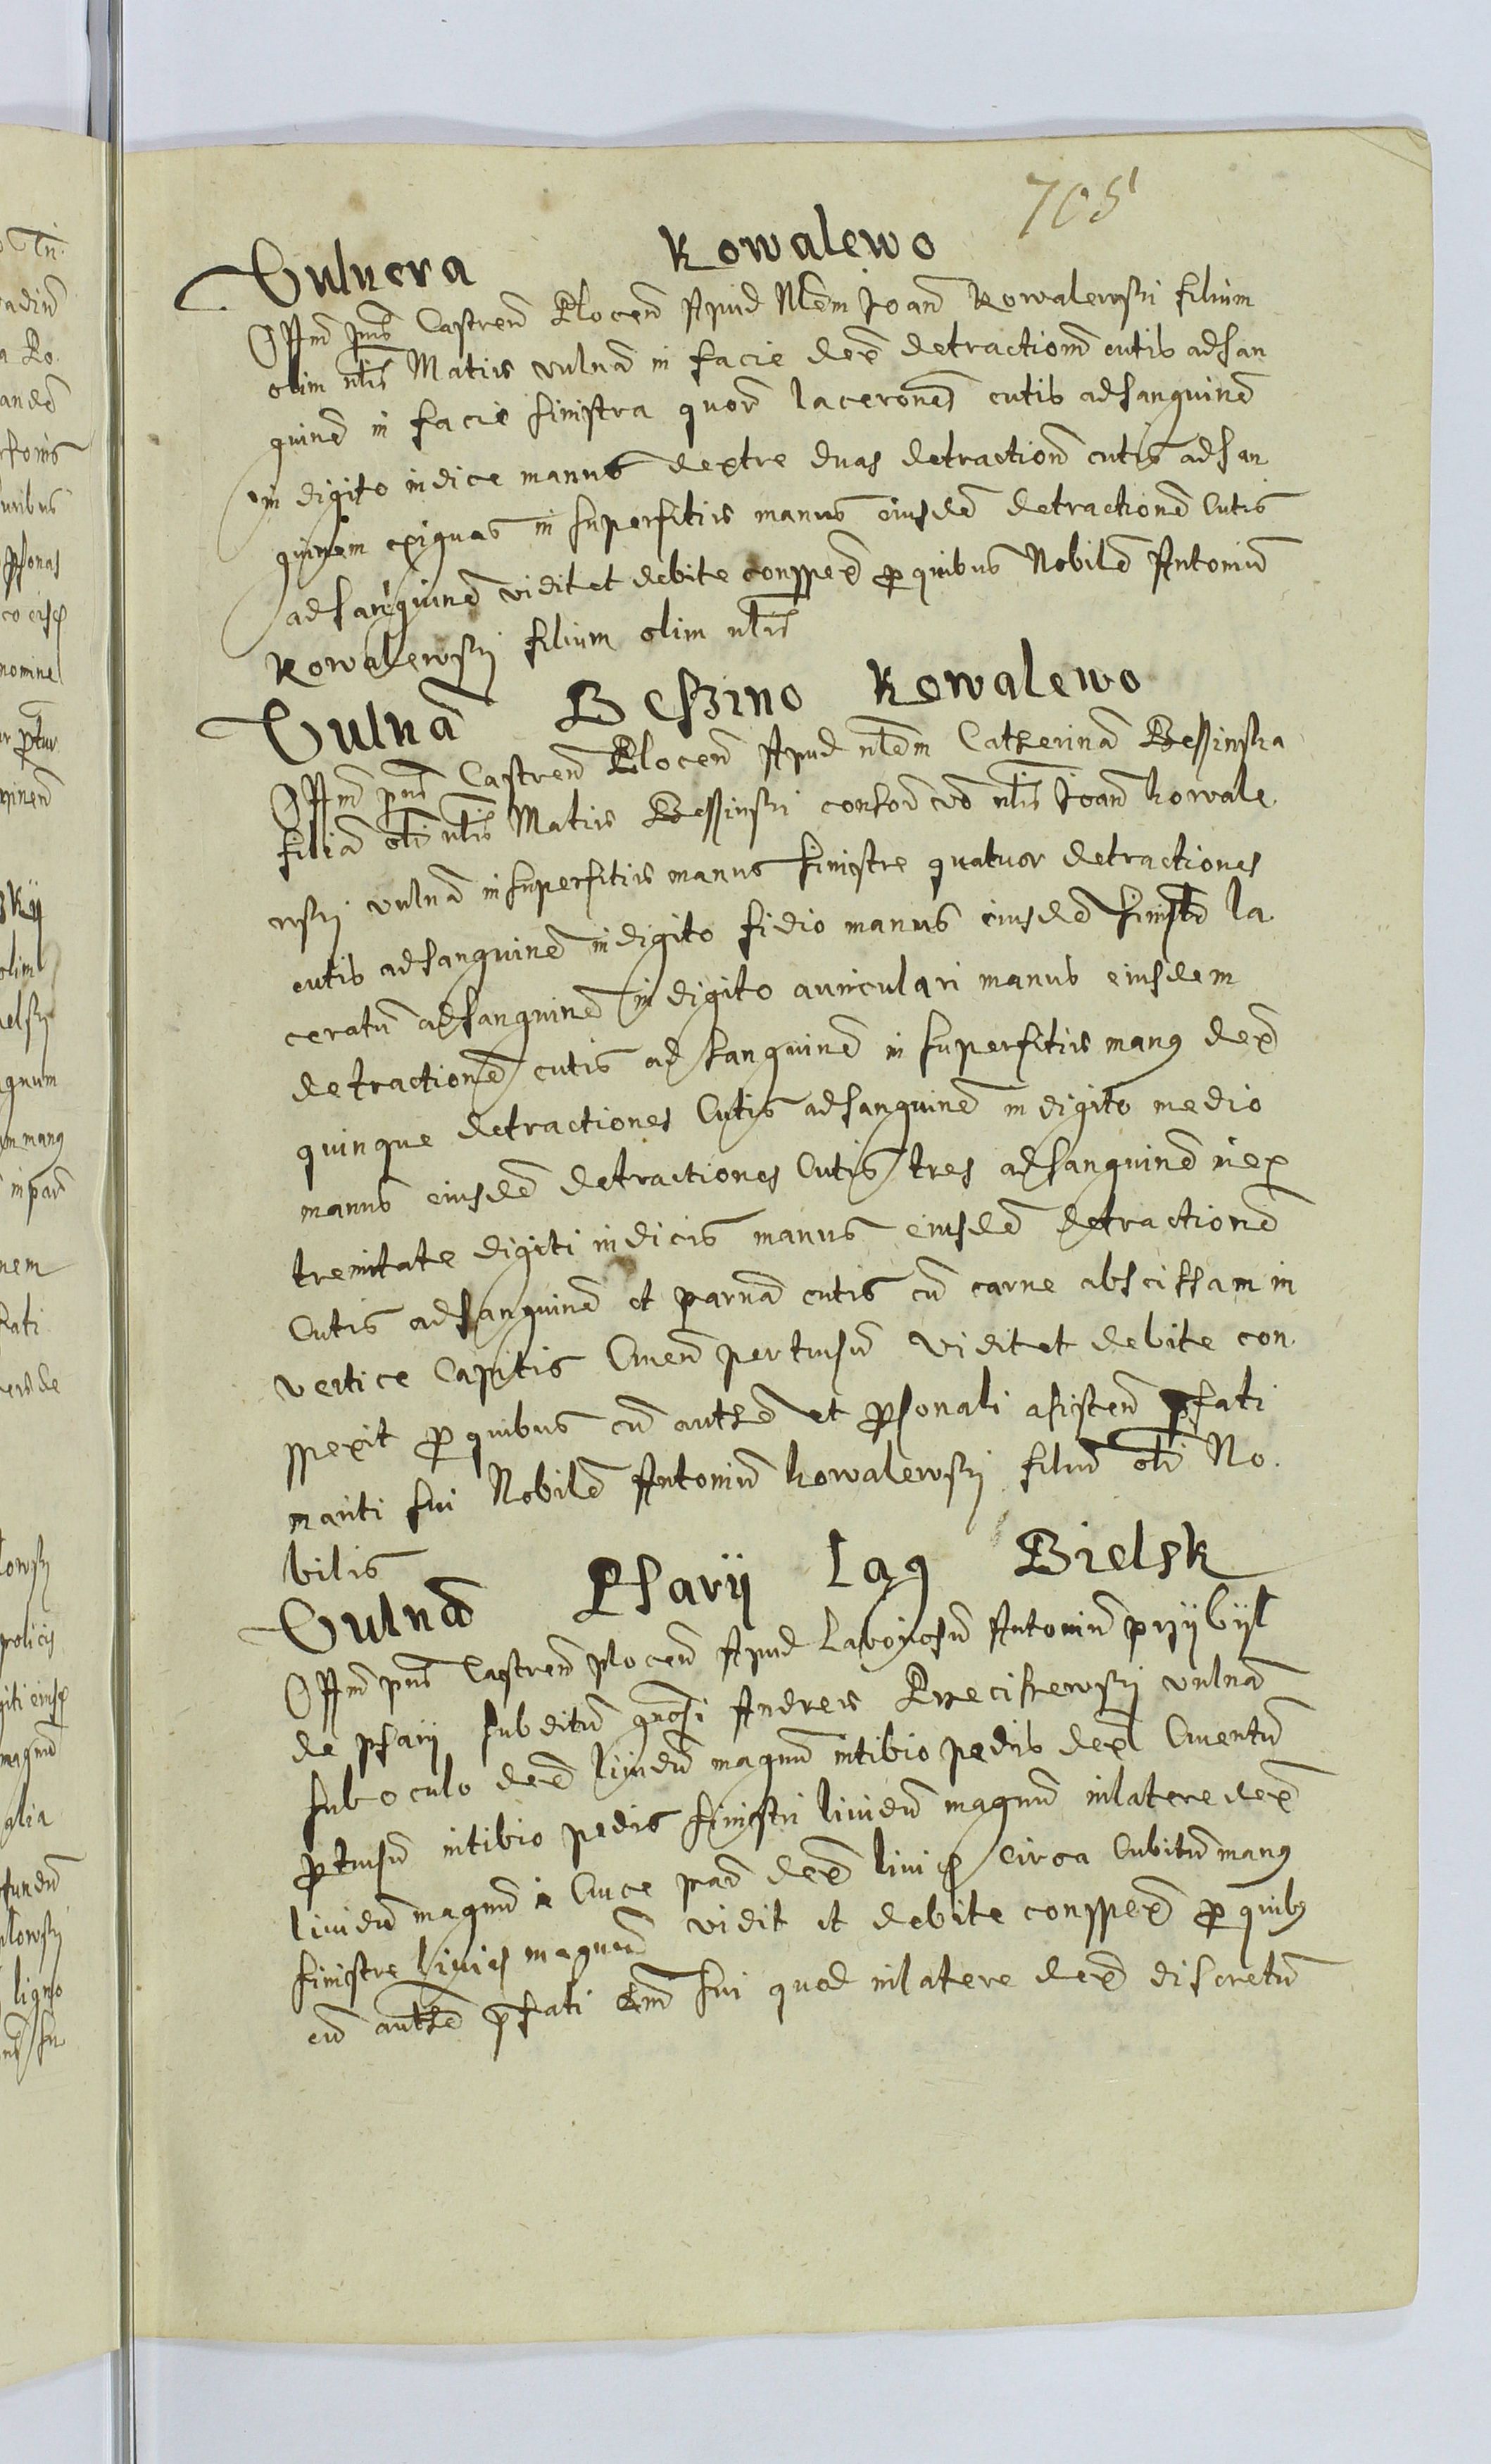 705
Vulnera Kowalewo
Offm pns Castren Plocen Apud Nlem Joan Kowalewski filium
olim nlis Matiis vulna in facie dex detractiom cutis ad san
guine in facie sinistra quor laceranes cutis ad sanguine
in digito indice manus dextre duas detraction cutis ad san
guinem exiguas in superfitiis manus eiusde detractione Cutis
ad sanguine vidit et debite conspex p quibus Nobile Antoniu
Kowalewskij filium olim nlis
Vulna Beszino Kowalewo
Offm pns Castren Plocen Apud nlem Catherina Bessinska
filia oli nlis Matiis Bessinski consor vo nlis Joan Kowale
wskij vulna in superfitiis manus sinistre quatuor detractiones
cutis ad sanguine in digito fidio manus eiusde sinistre la
ceratu ad sanguine in digito auriculari manus eiusdem
detractione cutis ad sanguine in superfitiis man9 dex
quinque detractiones Cutis ad sanguine in digito medio
manus eiusde detractiones Cutis tres ad sanguine in ex
tremitate digiti indicis manus eiusde detractione
Cutis ad sanguine et parna cutis cu carne abscissam in
vertice Capitis Cruen pertusu vidit et debite con
spexit p quibus cu authe et psonali asisten pfati
mariti sui Nobile Antoniu Kowalewskij filiu oli No
bilis
Vulna Psarij Lag Bielsk
Offm pns Castren plocen Apud Laboriosu Antoniu przijbijl
de psarij subditu gnosi Andreis Przeciszewskij vulna
sub oculo dex liuidu magnu in tibio pedis dex Cruentu
ptusu in tibio pedis sinistri liuidu magnu in latere dex
liuidu magnu i Cruce par dex liui circa Cubitu man9
sinistre liui magnu vidit et debite conspex p quib9
cu authe pfati dmi sui quod in latere dex discretu